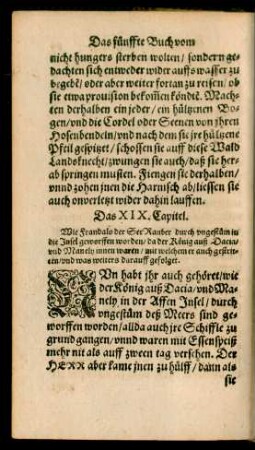 Das fünffte Buch vom
nicht hungers sterben wolten / sondern ge-
dachten sich entweder wider auffs wasser zu
begebē / oder aber weiter fortan zu reisen / ob
sie etwa prouision bekom̄en köndtē. Mach-
ten derhalben ein jeder / ein hültzenen Bo-
gen / vnd die Cordel oder Seenen von jhren
Hosenbendeln / vnd nach dem sie jre hültzene
Pfeil gespitzet / schossen sie auff diese Wald
Landsknecht / zwungen sie auch / daß sie her-
ab springen musten. Fiengen sie derhalben /
vnnd zohen jnen die Harnisch ab / liessen sie
auch onverletzt wider dahin lauffen.
Das XIX. Capitel.
Wie Frandalo der See Rauber durch vngestüm in
die Insel geworffen worden / da der König auß Dacia
vnd Manely innen waren / mit welchem er auch gestrit-
ten / vnd was weiters darauff gefolget.
NVn habt jhr auch gehöret / wie
der König auß Dacia / vnd Ma-
nely in der Affen Insel / durch
vngestüm deß Meers sind ge-
worffen worden / allda auch jre Schiffle zu
grund gangen / vnnd waren mit Essenspeiß
mehr nit als auff zween tag versehen. Der
HERR aber kame jnen zu hülff / dann als
sie